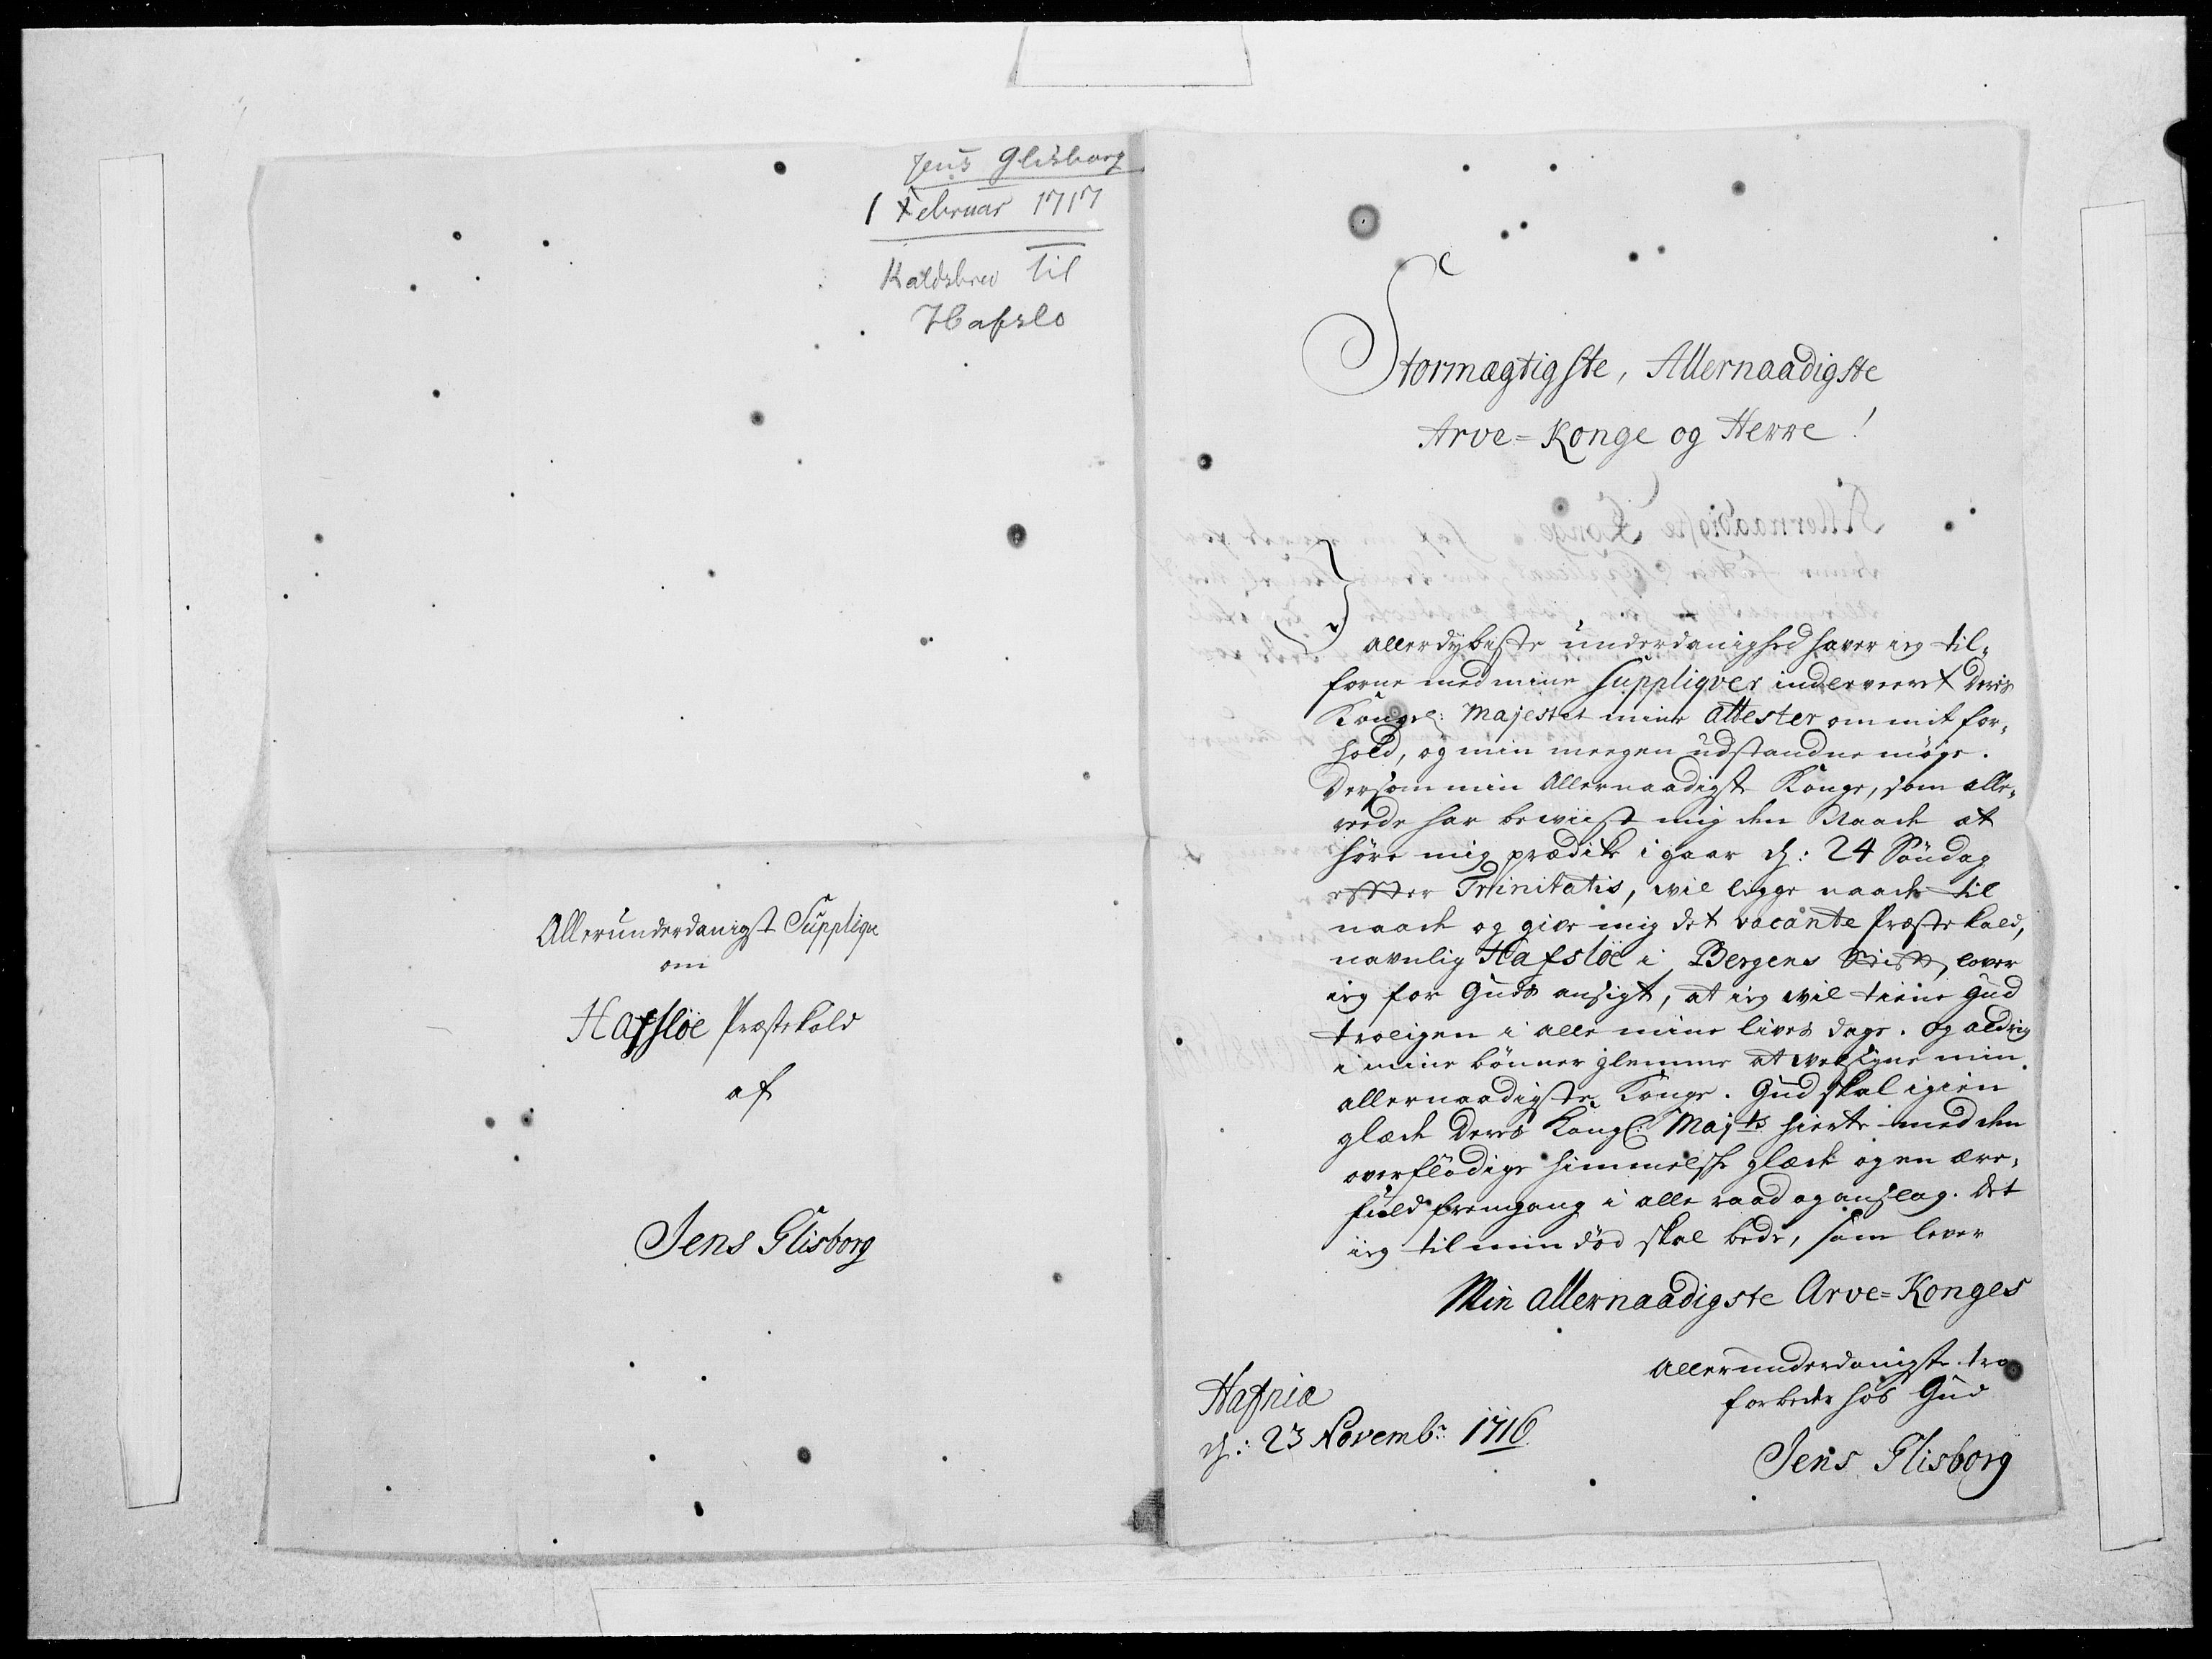 Jens Glisborg
1 Februar 1717
Kaldsbrev til
Hafslo
Allerunderdanigst Supplique
om
Hafsløe Præstekald
af
Jens Glisborg
Stormægtigste, Allernaadigste
Arve=Konge og Herre!
I allerdybeste underdanighed haver ieg til,,
forne med mine Suppliqver inderverert Deris
Kongel: Majestet mine attester om mit for,,
hold, og min megen udstandne möye.
Dersom min Allernaadigst Konge, som alle,,
reede har beviist mig den Naade at
høre mig prædike i gaar d: 24 Söndag
effter Trinitatis, vil legge naade til
naade og give mig det vacante Præste kald,
navnlig Hafsløe i Bergens Stifft, lover
ieg for Guds ansigt, at ieg vil tiene Gud
troligen i alle mine lives dage. og aldrig
i mine bönner glemme at velsigne min
allernaadigste Konge. Gud skal igien
glæde Deres Kongl: Majts hierte med den
overflödige himmelske glæde og en ære,,
fuld fremgang i alle raad og anslag. det
ieg til min död skal bede, som lever
Min allernaadigste Arve=Konges
Allerunderdanigste tro
forbeder hos Gud
Hafniæ
d: 23 Novembr: 1716
Jens Glisborg